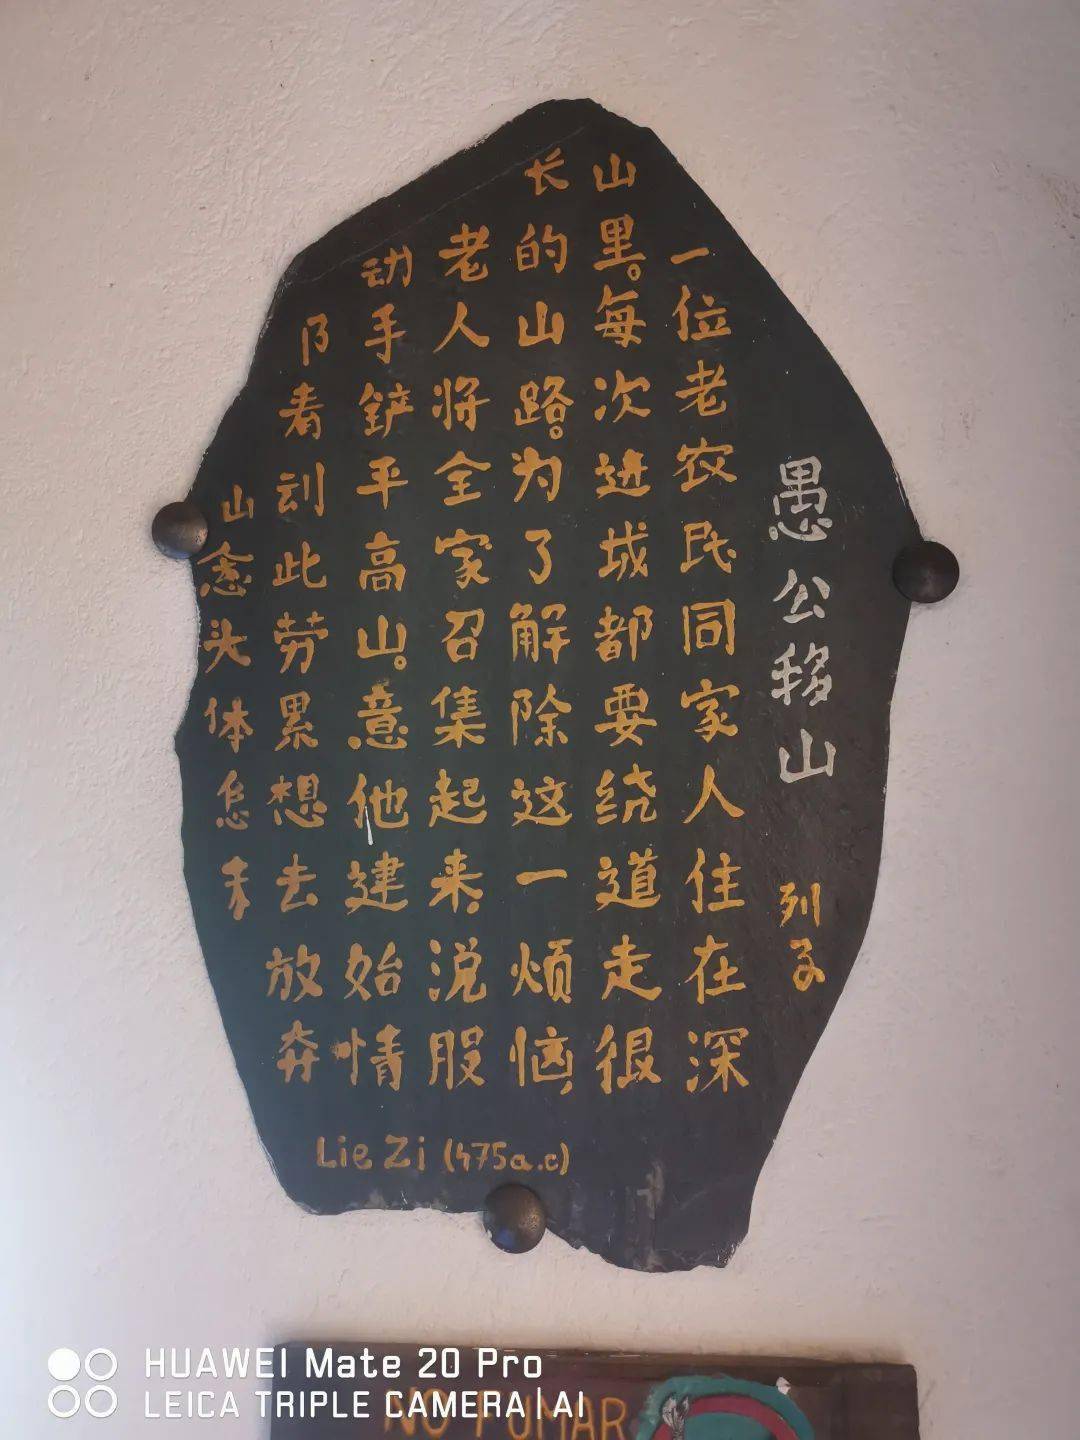 愚公移山
列子
一位老农民同家人住在深
山里。每次进城都要绕道走很
长的山路。为了解除这一烦恼,
老人将全家召集起来,说服
动手铲平高山。意他建始情
看到此劳累想去放奔
山念头体怎
Lie Zi (475a.c)
NO FUMAR
HUAWEI Mate 20 Pro
LEICA TRIPLE CAMERA|AI